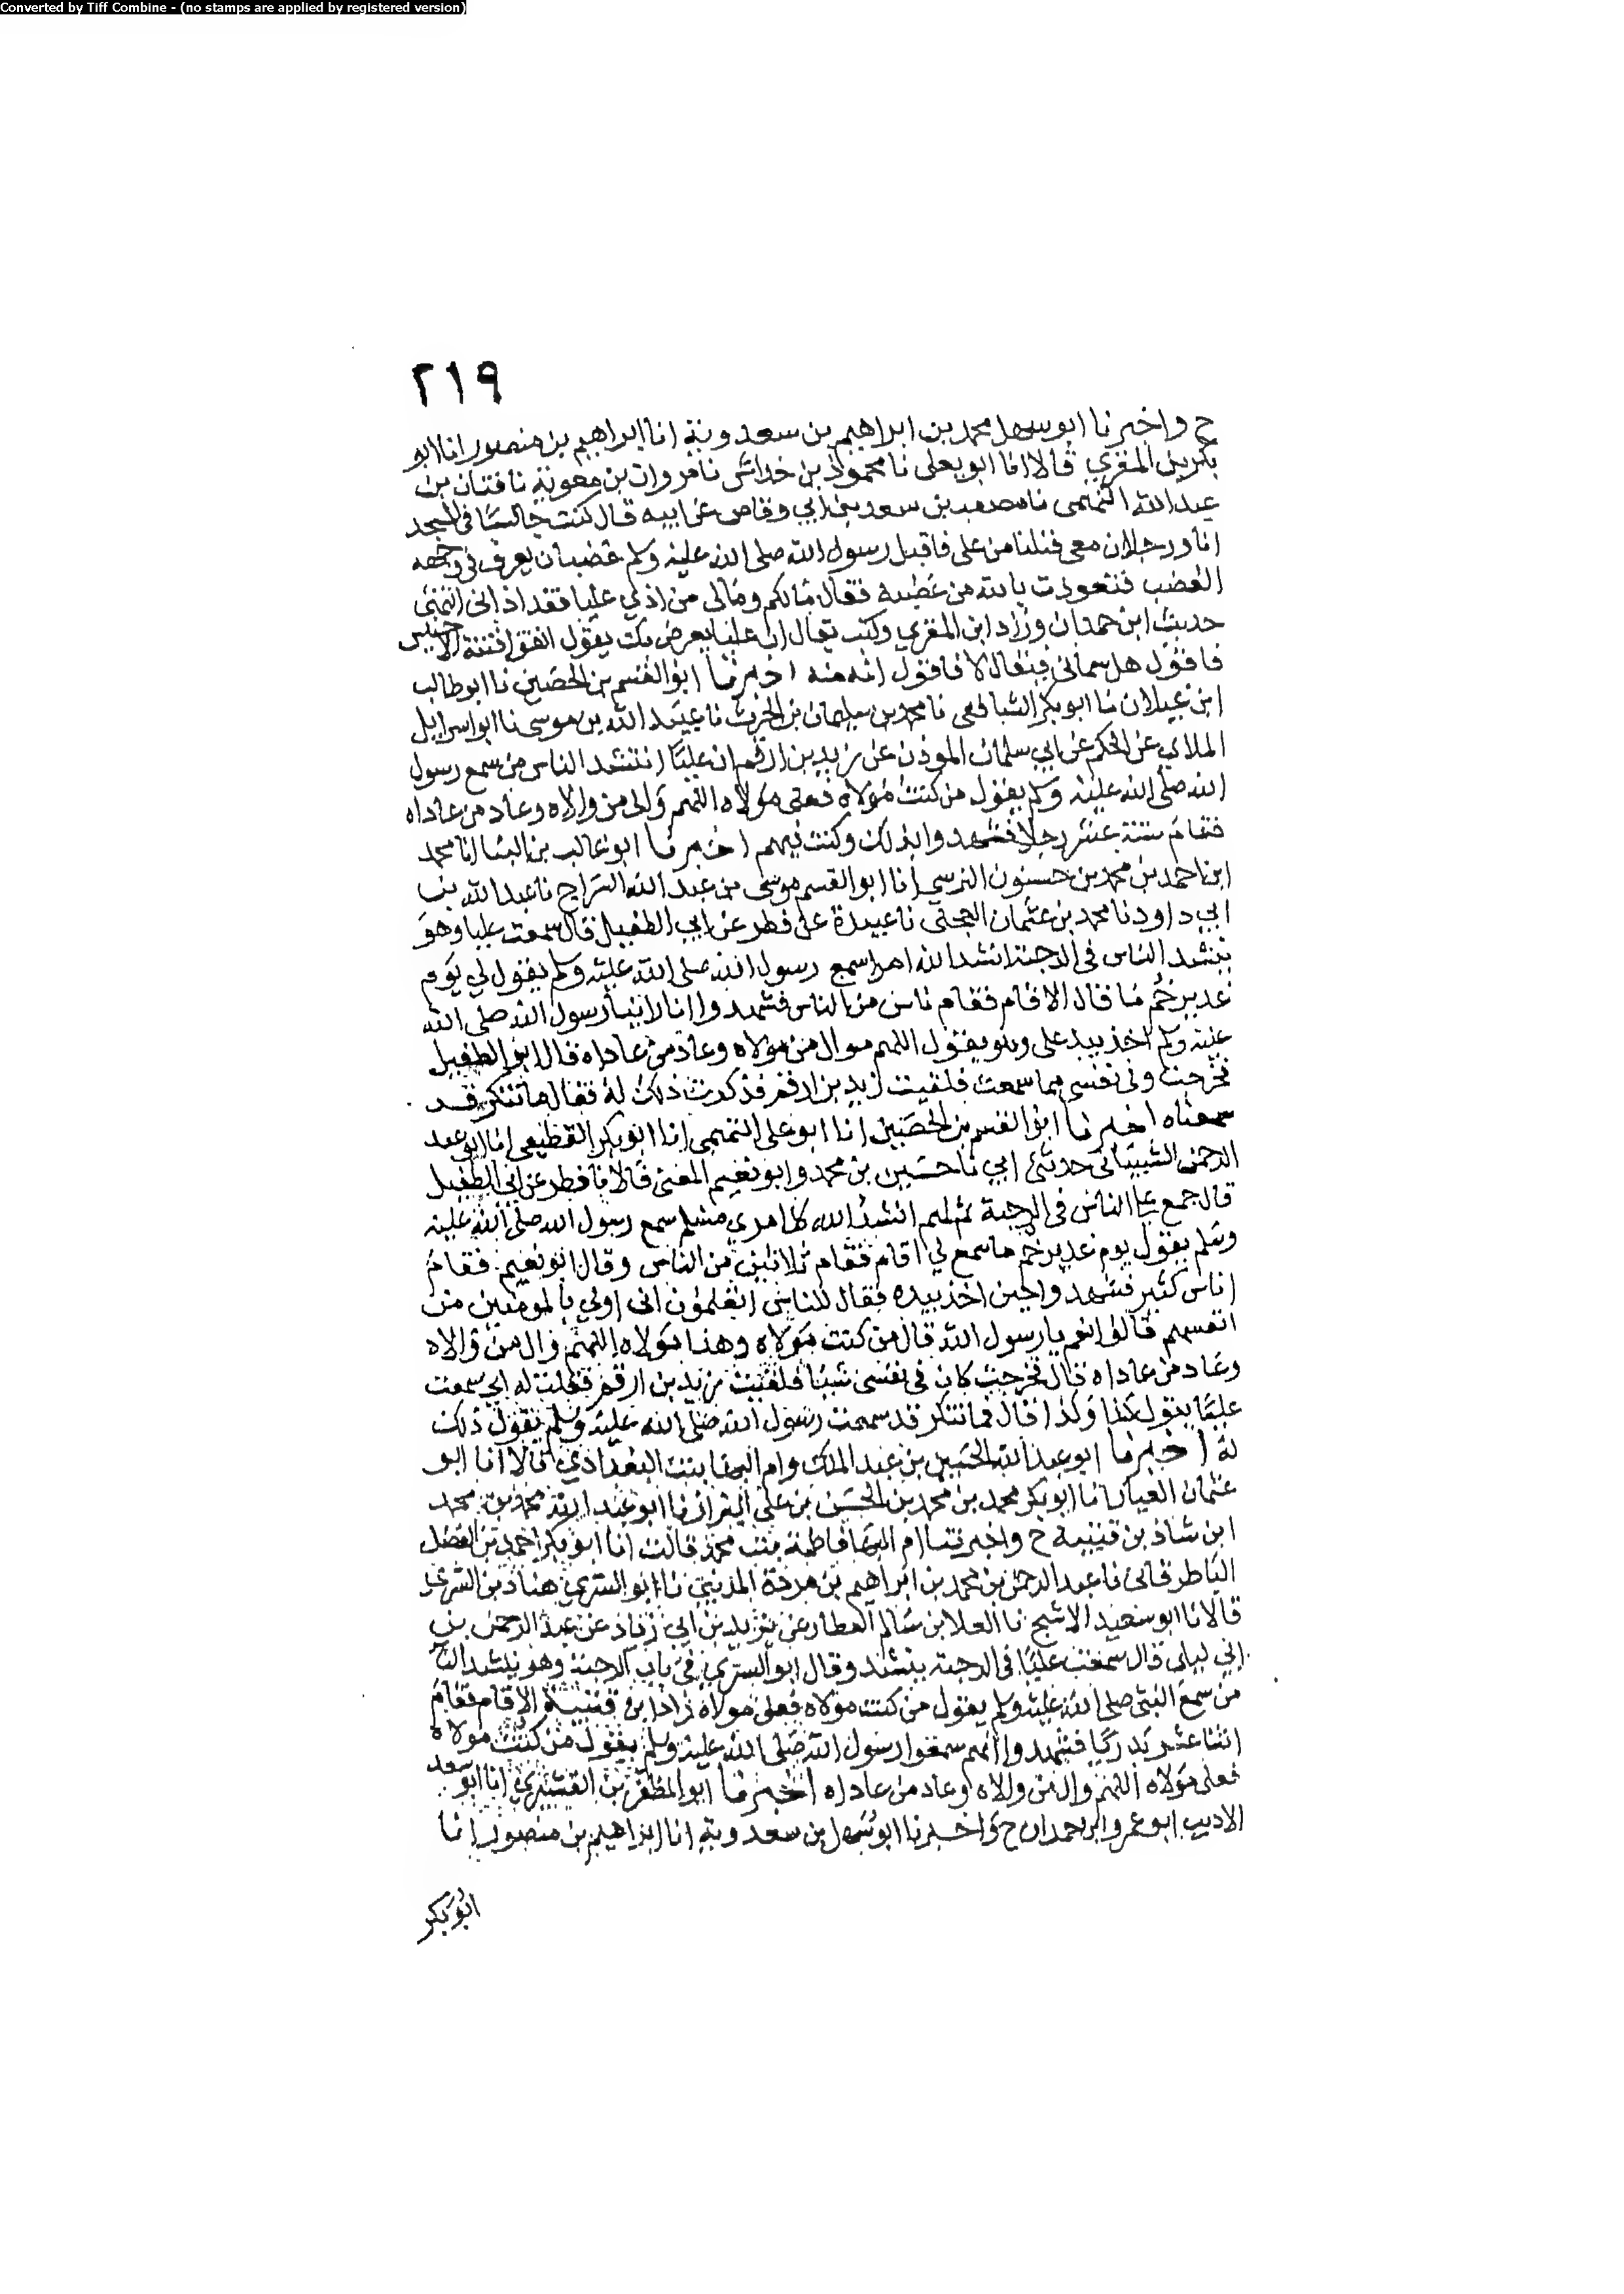 Converted by Tiff Combine - (no stamps are applied by registered version)
٢١٩
ح واخبرنا ابو سهل محمد بن ابراهيم بن سعدوية انا ابراهيم بن منصور انا ابو
بكر بن المقري قالا انا ابو يعلى نا محمود بن خداش نا مروان بن معوية نا قنان بن
عبد الله النهمى نا مصعب بن سعد بن ابي وقاص عن ابيه قال كنت جالسا في المسجد
انا ورجلان معى فنلنا من على فاقبل رسول الله صلى الله عليه وسلم غضبان يعرف في وجهه
الغضب فتعوذت بالله من غضبه فقال مالكم ومالى من اذي عليا فقد اذانى انتهى
حديث ابن حمدان وزاد ابن المقري وكنت يقال ان عليا يعرض بك يقول اتقوا فتنة الاخينس
فاقول هل سماني فيقال لا فاقول اخبرنا ابو القسم بن الحصين نا ابو طالب
ابن غيلان نا ابو بكر الشافعى نا محمد بن سليمان بن الحرث نا عبيد الله بن موسى نا ابو اسرايل
الملاي عن الحكم عن ابي سلمان الموذن عن زيد بن ارقم ان عليا انتشد الناس من سمع رسول
الله صلى الله عليه وسلم يقول من كنت مولاه فعلى مولاه اللهم وال من والاه وعاد من عاداه
فقام ستة عشر رجلا فشهدوا بذلك وكنت فيهم اخبرنا ابو غالب بن البنا انا محمد
ابن احمد بن محمد بن حسنون النرسي انا ابو القسم موسى بن عبد الله السراج نا عبد الله بن
ابي داود نا محمد بن عثمان العجلى نا عبيدة عن فطر عن ابي الطفيل قال سمعت عليا وهو
ينشد الناس في الرحبة انشد الله امرا سمع رسول الله صلى الله عليه وسلم يقول لي يوم
غدير خم ما قال الا قام فقام ناس من الناس فشهدوا انا رسول الله صلى الله
عليه وسلم اخذ بيد على وهو يقول اللهم وال من مولاه وعاد من عاداه قال ابو الطفيل
فخرجت وفي نفسي مما سمعت فلقيت زيد بن ارقم فذكرت ذلك له فقال ما تنكر قد
سمعناه اخبرنا ابو القسم بن الحصين انا ابو على التميمى انا ابو بكر القطيعى انا ابو عبد
الرحمن الشيباني حدثني ابي نا حسين بن محمد وابو نعيم المعنى قالا نا فطر عن ابي الطفيل
قال جمع على الناس في الرحبة ثم لهم انشد الله كل امري مسلم سمع رسول الله صلى الله عليه
وسلم يقول يوم غدير خم ما سمع لي اقام فقام ثلاثين من الناس وقال ابو نعيم فقام
اناس كثير فشهدوا حين اخذ بيده فقال للناس اتعلمون اني اولي بالمومنين من
انفسهم قالوا نعم يا رسول الله قال من كنت مولاه وهذا مولاه اللهم وال من والاه
وعاد من عاداه قال فخرجت كان في نفسي شيئا فلقيت زيد بن ارقم فقلت له اني سمعت
عليا يقول كذا وكذا قال فما تنكر قد سمعت رسول الله صلى الله عليه وسلم يقول ذلك
له اخبرنا ابو عبد الله الحسين بن عبد الملك وام البها بنت البغدادي قالا انا ابو
عثمان العيار انا ابو بكر محمد بن محمد بن الحسن بن على البزاز نا ابو عبد الله محمد بن محمد
ابن شاذ بن قتيبة ح واخبرتنا ام البها فاطمة بنت محمد قالت انا ابو بكر احمد بن الفضل
الباطرقاني نا عبد الرحمن بن محمد بن ابراهيم بن المديني نا ابو السري هناد بن السري
قالا نا ابو سعيد الاشج نا العلا بن سالم العطار عن يزيد بن ابي زناد عن عبد الرحمن بن
ابي ليلى قال سمعت عليا في الرحبة ينشد وقال ابو السري في باب الرحبة وهو ينشد الناس
من سمع النبي صلى الله عليه وسلم يقول من كنت مولاه فعلى مولاه زاد ابن قتيبة الا قام فقام
اثنا عشر بدريا فشهدوا انهم سمعوا رسول الله صلى الله عليه وسلم يقول من كنت مولاه
فعلى مولاه اللهم وال من والاه وعاد من عاداه اخبرنا ابو المظفر بن القشيري انا ابو سعد
الاديب ابو عمرو بن حمدان ح واخبرنا ابو سهل بن سعدوية انا ابراهيم بن منصور انا
ابو بكر